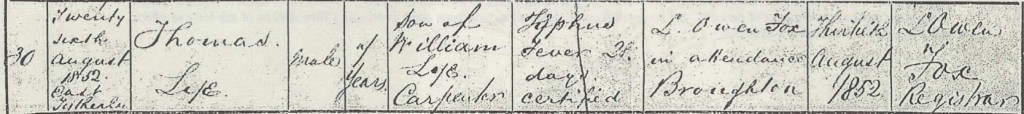 30
Twenty
sixth
August
1852
East
Tytherley
Thomas
Male
years
Son of
William
Carpenter
Typhus
Fever
days
certified
L. Owen Fox
in attendance
Broughton
Thirtieth
August
1852
L Owen
Fox
Registrar